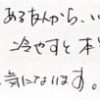 あるもんから、い
冷やすと本
気になります。